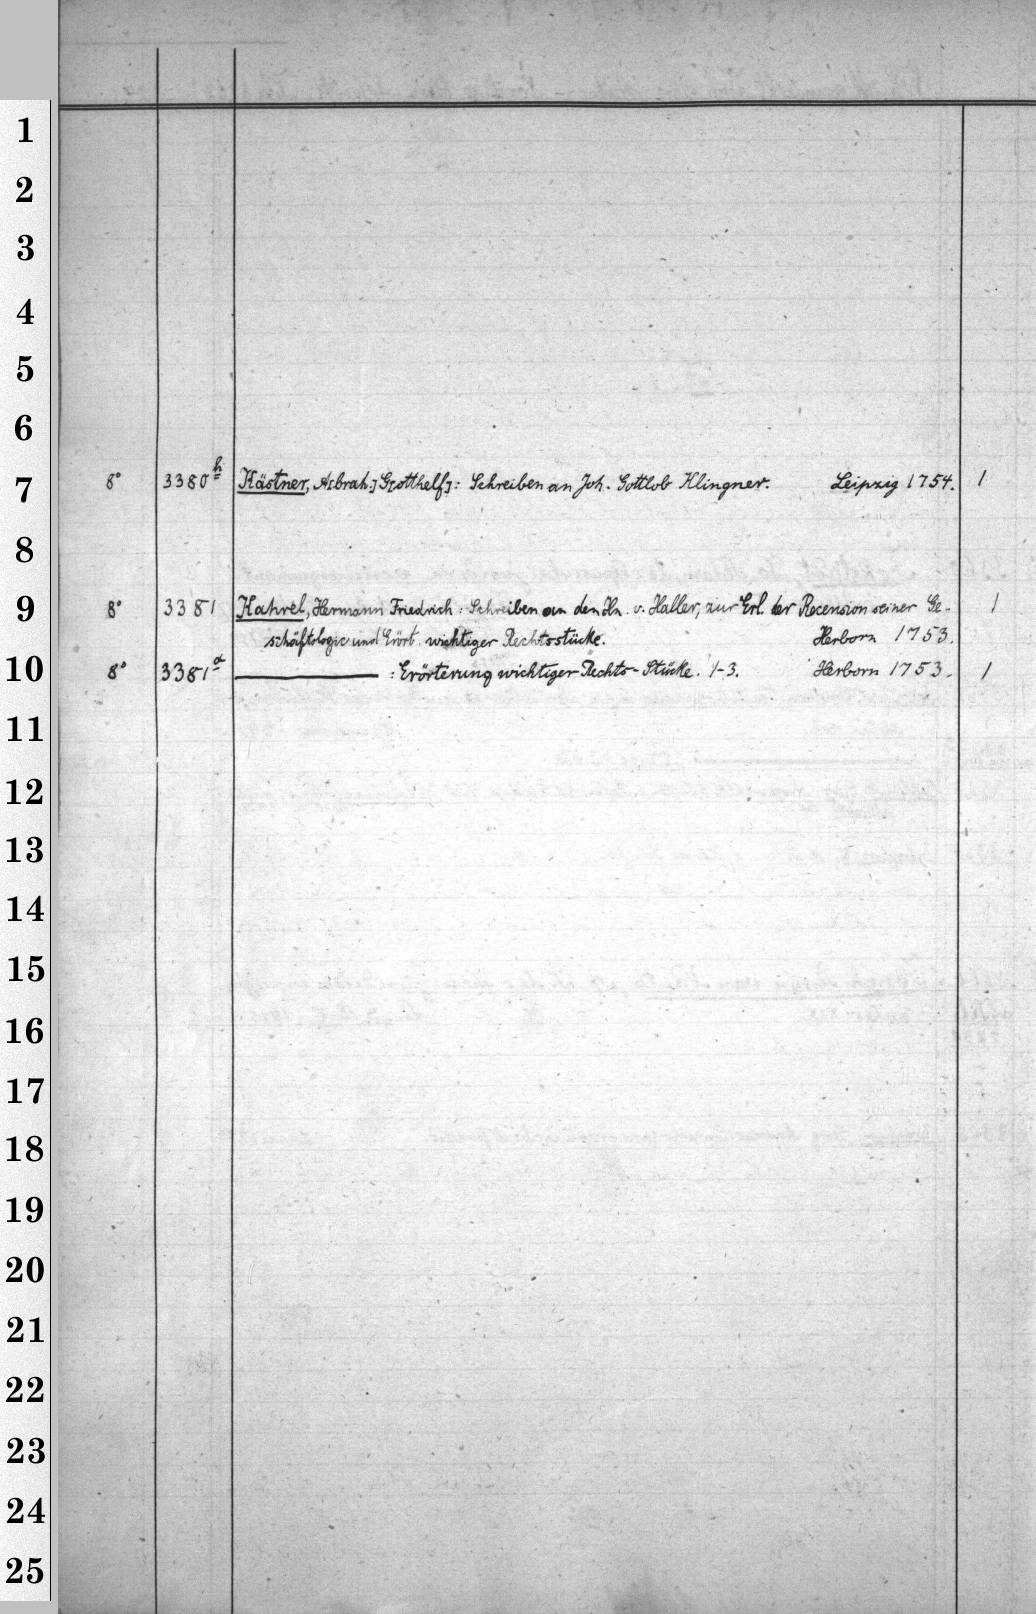 1
2
3
4
5
6
7 8° 3380h Kästner, A[brah.] G[otthelf]: Schreiben an Joh. Gottlob Klingner. Leipzig 1754. 1
8
9 8° 3381 Kahrel, Hermann Friedrich: Schreiben an den Hn. v. Haller, zur Erl. der Recension seiner Ge-
schäftslogic und Erört. wichtiger Rechtsstücke. Herborn 1753. 1
10 8° 3381a ——— : Erörterung wichtiger Rechts-Stücke. 1-3. Herborn 1753. 1
11
12
13
14
15
16
17
18
19
20
21
22
23
24
25